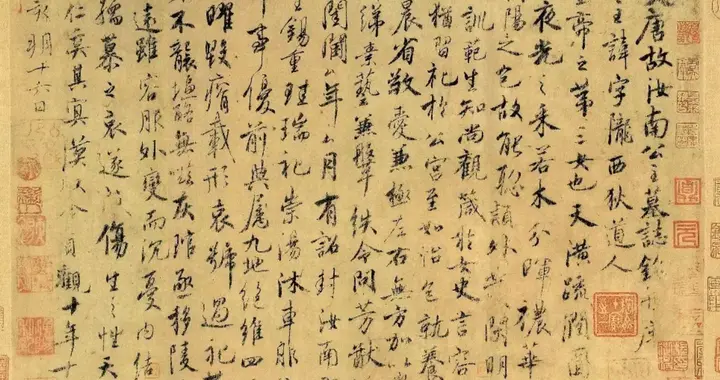 唐故汝南公主墓誌銘并序
主諱字隴西狄道人
皇帝之第三女也天潢疏潤圓
夜光之采若木分暉穠華
陽之色故能聡穎外發閑明
訓範生知尚觀箴於女史言容
猶習礼於公宮至如怡色就養
晨省敬愛兼極左右無方加以
綈素藝兼鞶紩令問芳猷
閨閫年月有詔封汝南郡
主錫重珪瑞礼崇湯沐車服
事優前典属九地絶維四
曜毀瘠載形哀號過礼
不襲塩酪無嗞灰琯亟移陵
遠雖容服外變而沉憂内結
孺慕之哀遂成傷生之性天
仁奚其冥漠以今貞觀十年十
亥朔十六日